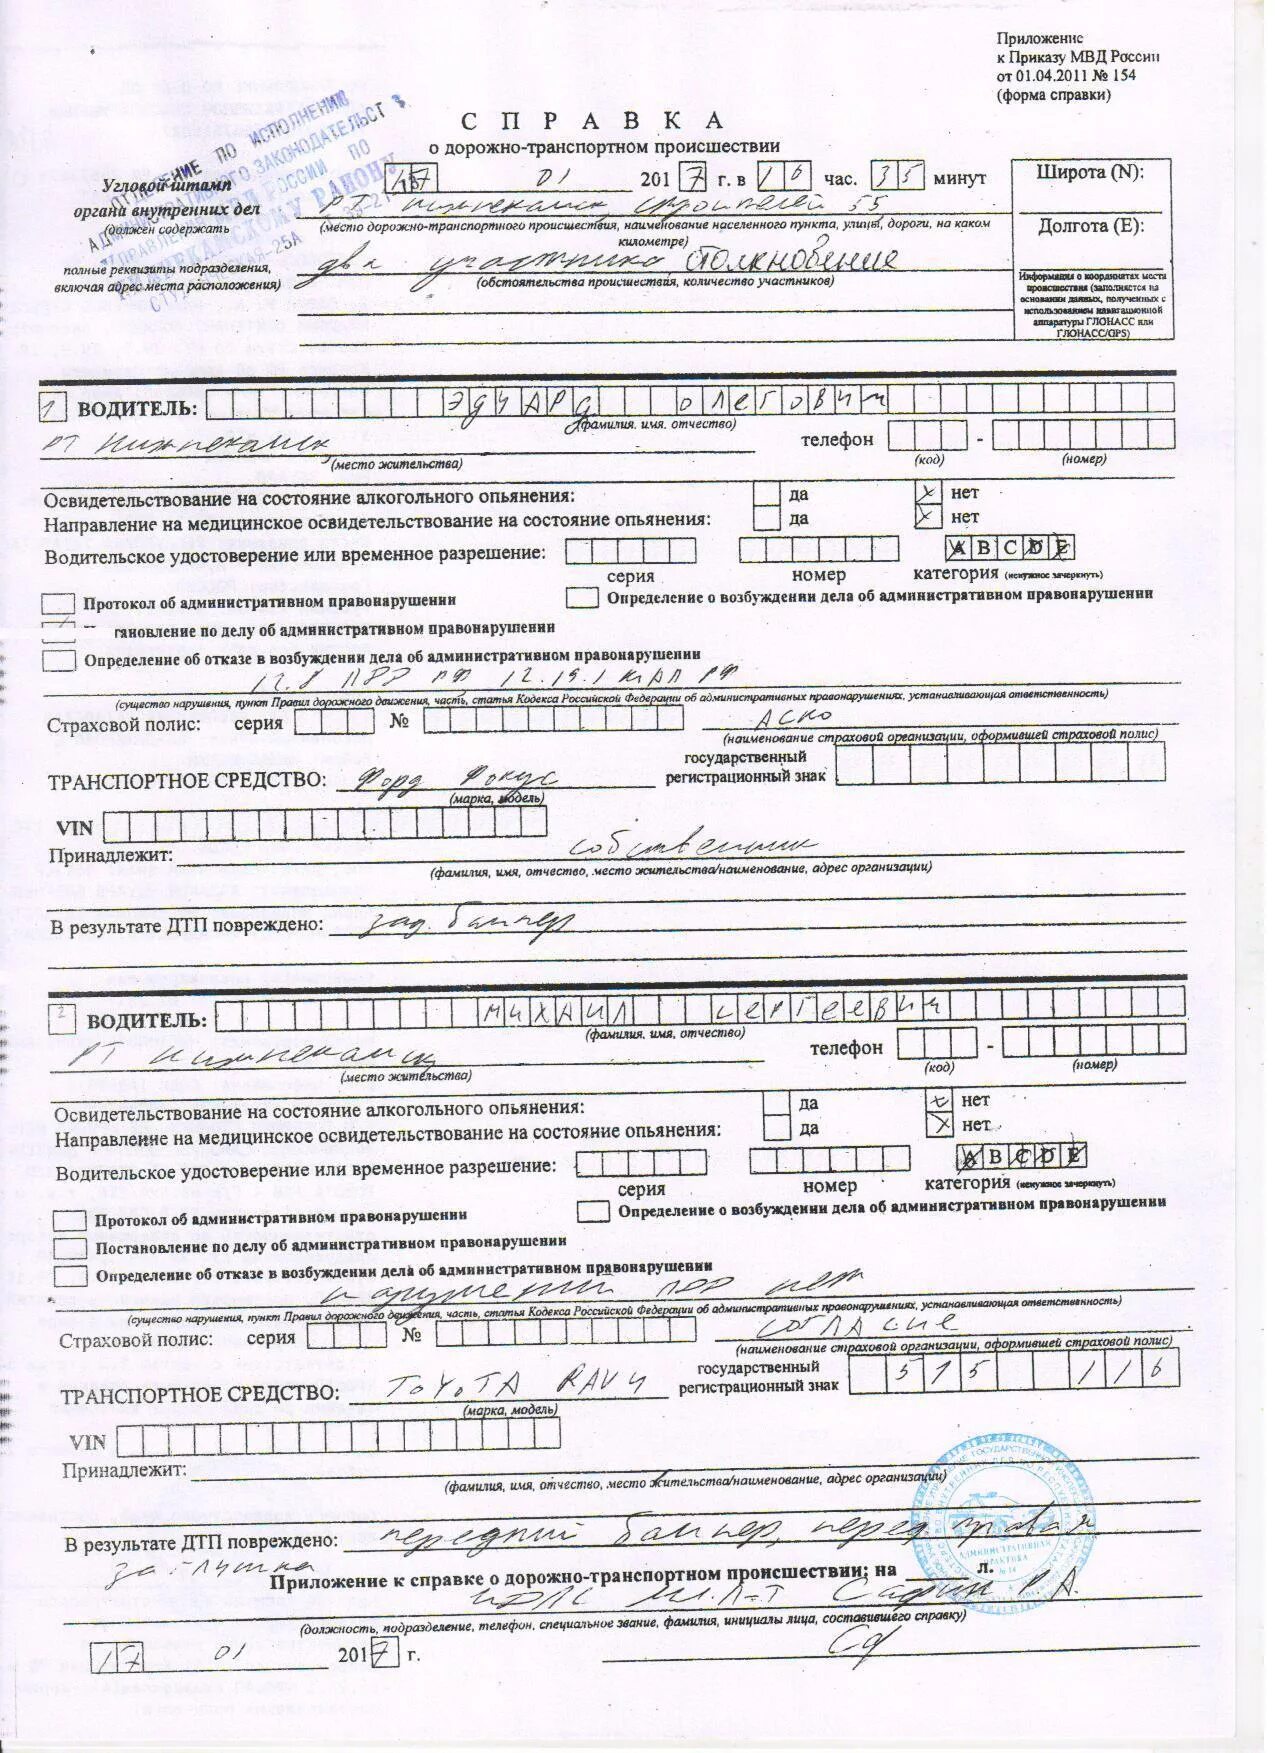 Приложение
к Приказу МВД России
от 01.04.2011 № 154
(форма справки)
СПРАВКА
о дорожно-транспортном происшествии
ОТДЕЛЕНИЕ ПО ИСПОЛНЕНИЮ
АДМИНИСТРАТИВНОГО ЗАКОНОДАТЕЛЬСТВ
РОССИИ ПО
РАЙОНУ
СТУДЕНЧЕСКАЯ-25А
Угловой штамп
органа внутренних дел
(должен содержать
полные реквизиты подразделения,
включая адрес места расположения)
17 01 2017 г. в 16 час. 35 минут
РТ. Нижнекамск, Строителей 55
(место дорожно-транспортного происшествия, наименование населенного пункта, улицы, дороги, на каком
километре)
два участника столкновение
(обстоятельства происшествия, количество участников)
Широта (N):
Долгота (E):
Информация о координатах места
происшествия (заполняется на
основании данных, полученных с
использованием навигационной
аппаратуры ГЛОНАСС или
ГЛОНАСС/GPS)
1 ВОДИТЕЛЬ: ЭДУАРД ОЛЕГОВИЧ
(фамилия, имя, отчество)
РТ Нижнекамск
(место жительства)
телефон -
(код) (номер)
Освидетельствование на состояние алкогольного опьянения: да x нет
Направление на медицинское освидетельствование на состояние опьянения: да x нет
Водительское удостоверение или временное разрешение: A B C D E
серия номер категория (ненужное зачеркнуть)
Протокол об административном правонарушении
Определение о возбуждении дела об административном правонарушении
тановление по делу об административном правонарушении
Определение об отказе в возбуждении дела об административном правонарушении
12.8 ПДД РФ 12.15.1 КоАП РФ
(существо нарушения, пункт Правил дорожного движения, часть, статья Кодекса Российской Федерации об административных правонарушениях, устанавливающая ответственность)
Страховой полис: серия № АСКО
(наименование страховой организации, оформившей страховой полис)
ТРАНСПОРТНОЕ СРЕДСТВО: Форд Фокус
(марка, модель)
государственный
регистрационный знак
VIN
Принадлежит: собственник
(фамилия, имя, отчество, место жительства/наименование, адрес организации)
В результате ДТП повреждено: зад. бампер
2 ВОДИТЕЛЬ: МИХАИЛ СЕРГЕЕВИЧ
(фамилия, имя, отчество)
РТ Нижнекамск
(место жительства)
телефон -
(код) (номер)
Освидетельствование на состояние алкогольного опьянения: да x нет
Направление на медицинское освидетельствование на состояние опьянения: да x нет
Водительское удостоверение или временное разрешение: A B C D E
серия номер категория (ненужное зачеркнуть)
Протокол об административном правонарушении
Определение о возбуждении дела об административном правонарушении
Постановление по делу об административном правонарушении
Определение об отказе в возбуждении дела об административном правонарушении
нарушений ПДД нет
(существо нарушения, пункт Правил дорожного движения, часть, статья Кодекса Российской Федерации об административных правонарушениях, устанавливающая ответственность)
Страховой полис: серия № СОГЛАСИЕ
(наименование страховой организации, оформившей страховой полис)
ТРАНСПОРТНОЕ СРЕДСТВО: TOYOTA RAV4
(марка, модель)
государственный
регистрационный знак 515 116
VIN
Принадлежит:
(фамилия, имя, отчество, место жительства/наименование, адрес организации)
В результате ДТП повреждено: передний бампер, перед. правая
заглушка
Приложение к справке о дорожно-транспортном происшествии: на л.
АДМИНИСТРАТИВНАЯ
ПРАКТИКА
№ 14
(должность, подразделение, телефон, специальное звание, фамилия, инициалы лица, составившего справку)
17 01 2017 г.